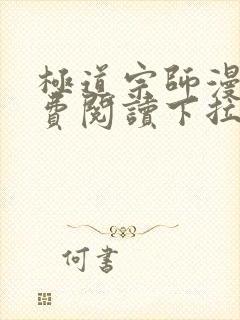 極道宗師漫
費閱讀下拉
何書